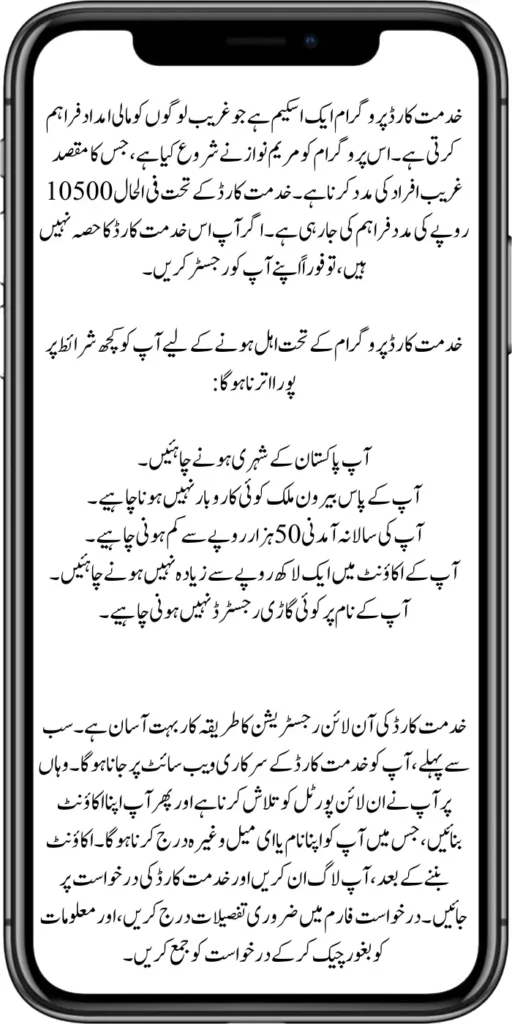 خدمت کارڈ پروگرام ایک اسکیم ہے جو غریب لوگوں کو مالی امداد فراہم
کرتی ہے۔ اس پروگرام کو مریم نواز نے شروع کیا ہے، جس کا مقصد
غریب افراد کی مدد کرنا ہے۔ خدمت کارڈ کے تحت فی الحال 10500
روپے کی مدد فراہم کی جا رہی ہے۔ اگر آپ اس خدمت کارڈ کا حصہ نہیں
ہیں، تو فوراً اپنے آپ کو رجسٹر کریں۔
خدمت کارڈ پروگرام کے تحت اہل ہونے کے لیے آپ کو کچھ شرائط پر
پورا اترنا ہوگا:
آپ پاکستان کے شہری ہونے چاہئیں۔
آپ کے پاس بیرون ملک کوئی کاروبار نہیں ہونا چاہیے۔
آپ کی سالانہ آمدنی 50 ہزار روپے سے کم ہونی چاہیے۔
آپ کے اکاؤنٹ میں ایک لاکھ روپے سے زیادہ نہیں ہونے چاہئیں۔
آپ کے نام پر کوئی گاڑی رجسٹرڈ نہیں ہونی چاہیے۔
خدمت کارڈ کی آن لائن رجسٹریشن کا طریقہ کار بہت آسان ہے۔ سب
سے پہلے، آپ کو خدمت کارڈ کے سرکاری ویب سائٹ پر جانا ہوگا۔ وہاں
پر آپ نے ان لائن پورٹل کو تلاش کرنا ہے اور پھر آپ اپنا اکاؤنٹ
بنائیں، جس میں آپ کو اپنا نام یا ای میل وغیرہ درج کرنا ہوگا۔ اکاؤنٹ
بننے کے بعد، آپ لاگ ان کریں اور خدمت کارڈ کی درخواست پر
جائیں۔ درخواست فارم میں ضروری تفصیلات درج کریں، اور معلومات
کو بغور چیک کر کے درخواست کو جمع کریں۔